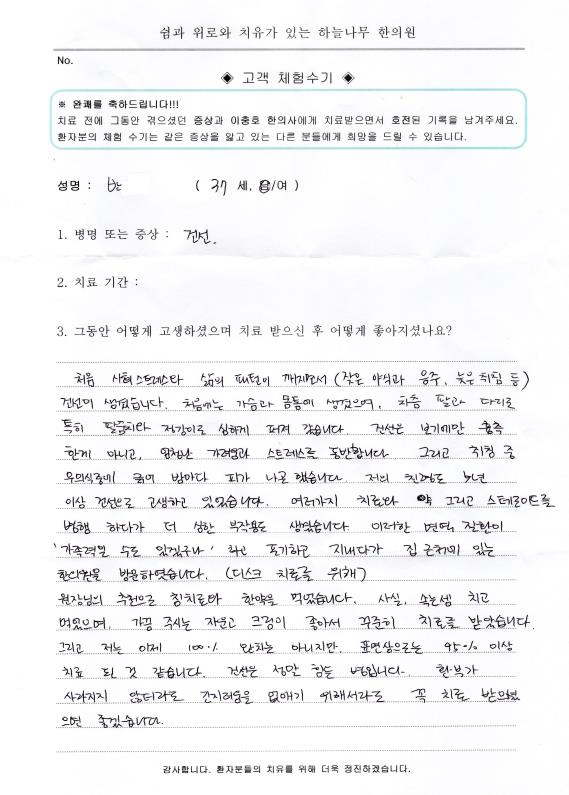 쉼과 위로와 치유가 있는 하늘나무 한의원
No.
◈ 고객 체험수기 ◈
※ 완쾌를 축하드립니다!!!
치료 전에 그동안 겪으셨던 증상과 이충호 한의사에게 치료받으면서 호전된 기록을 남겨주세요.
환자분의 체험 수기는 같은 증상을 앓고 있는 다른 분들에게 희망을 드릴 수 있습니다.
성명 : ( 37 세, 남/여 )
1. 병명 또는 증상 : 건선.
2. 치료 기간 :
3. 그동안 어떻게 고생하셨으며 치료 받으신 후 어떻게 좋아지셨나요?
처음 사회스트레스와 삶의 패턴이 깨지면서 (잦은 야식과 음주, 늦은 취침 등)
건선이 생겼습니다. 처음에는 가슴과 몸통에 생겼으며, 차츰 팔과 다리로
특히 팔꿈치와 정강이로 심하게 퍼져 갔습니다. 건선은 보기에만 흉측
한게 아니고, 엄청난 가려움과 스트레스를 동반합니다 그리고 취침 중
무의식중에 긁어 밤마다 피가 나곤 했습니다. 저의 친형도
이상 건선으로 고생하고 있었습니다. 여러가지 치료와 약 그리고 스테로이드를
병행 하다가 더 심한 부작용도 생겼습니다 이러한 면역 질환이
'가족력일 수도 있겠구나' 하고 포기하고 지내다가 집 근처에 있는
한의원을 방문하였습니다. (디스크 치료를 위해)
원장님의 추천으로 침치료와 한약을 먹었습니다. 사실, 속는셈 치고
먹었으며, 가끔 주시는 자운고 크림이 좋아서 꾸준히 치료를 받았습니다.
그리고 저는 이제 100% 완치는 아니지만, 표면상으로는 95% 이상
치료 된 것 같습니다. 건선은 정말 힘든 병입니다. 환부가
사라지지 않더라도 간지러움을 없애기 위해서라도 꼭 치료 받으셨
으면 좋겠습니다.
감사합니다. 환자분들의 치유를 위해 더욱 정진하겠습니다.